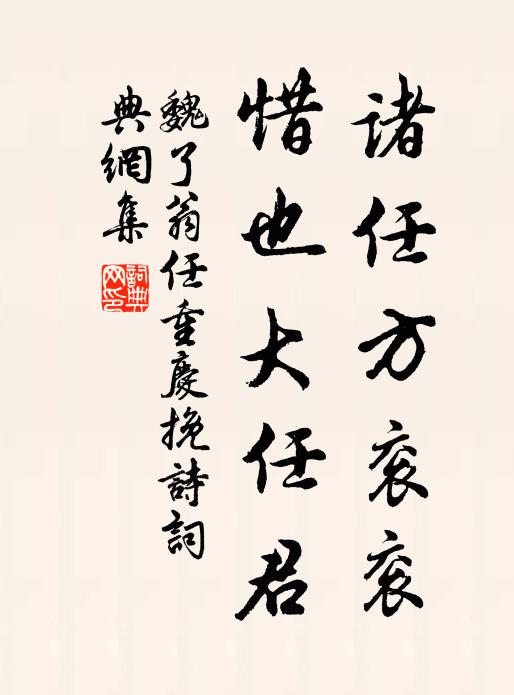 諸任方衮衮
惜也大任君
魏了翁任重慶挽詩詞
典網集
詞典網印